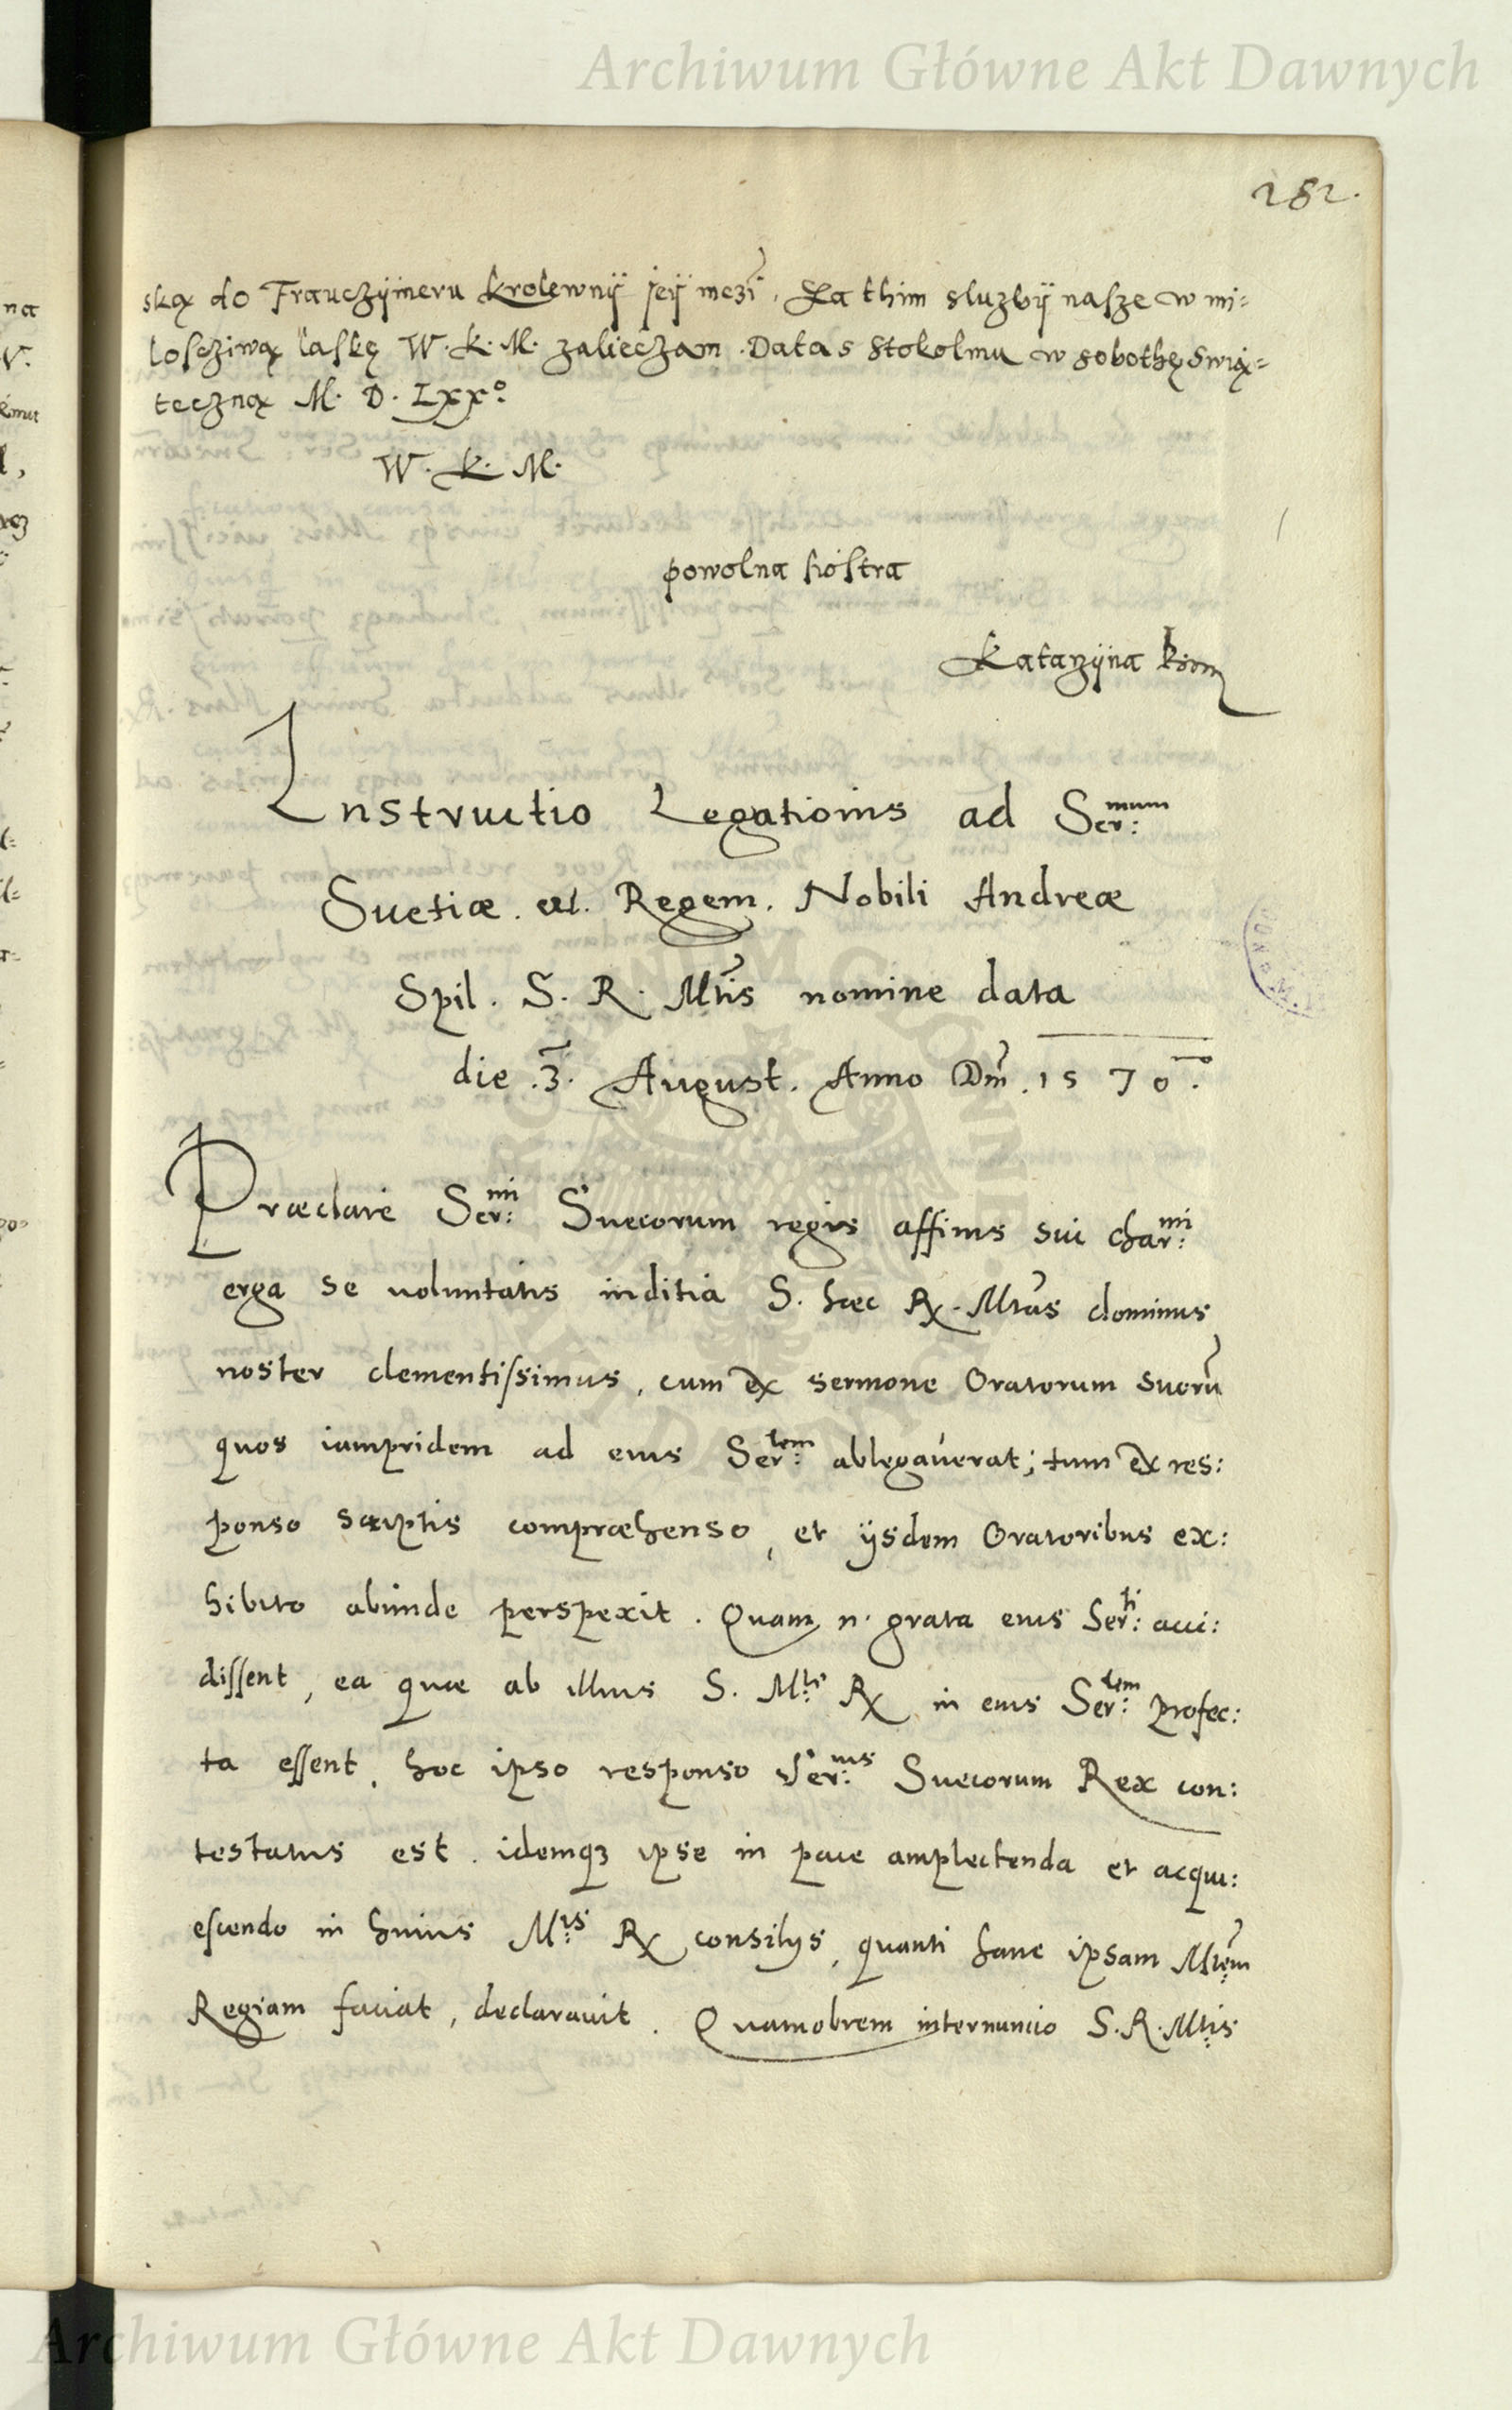 Archiwum Główne Akt Dawnych
282.
ską do Frauczÿmeru krolewnÿ jeÿ mczi. Za thim sluzbÿ nasze w mi=
losczivą laskę W. K. M. zalieczam. Datas Stokolmu w sobothę swią=
teczną M. D. Lxxº
W. K. M.
powolna siostra
Katarzÿna
Instructio Legationis ad Ser:mum
Suetiæ. etc. Regem. Nobili Andreæ
Spil. S. R. Mtis nomine data
die .3. August. Anno Dni. 1570.
Præclare Ser:mi Suecorum regis affinis sui char:mi
erga se voluntatis inditia S. hæc Rx. Mtas dominus
noster clementissimus, cum ex sermone Oratorum suorũ
quos iampridem ad eius Ser:tem ablegaverat; tum ex res:
ponso scriptis compræhenso, et ijsdem Oratoribus ex:
hibito abunde perspexit. Quam n. grata eius Ser:ti acci:
dissent, ea quæ ab illius S. M:te Rx in eius Ser:tem profec:
ta essent, hoc ipso responso Ser:mus Suecorum Rex con:
testatus est. idemqꝫ ipse in pace amplectenda et acqui:
escendo in huius M:tis Rx consilijs, quanti hanc ipsam Mtem
Regiam faciat, declaravit. Quamobrem internuncio S. R. Mtis
Archiwum Główne Akt Dawnych